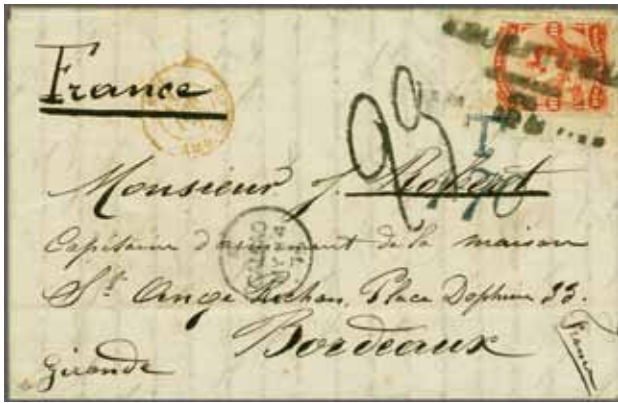 France
23
T
70
Monsieur J. Robert
Capitaine d'armement de la maison
St Ange Rochon, Place Dophine 33.
CALLAO
MY 4
Bordeaux
Gironde
France